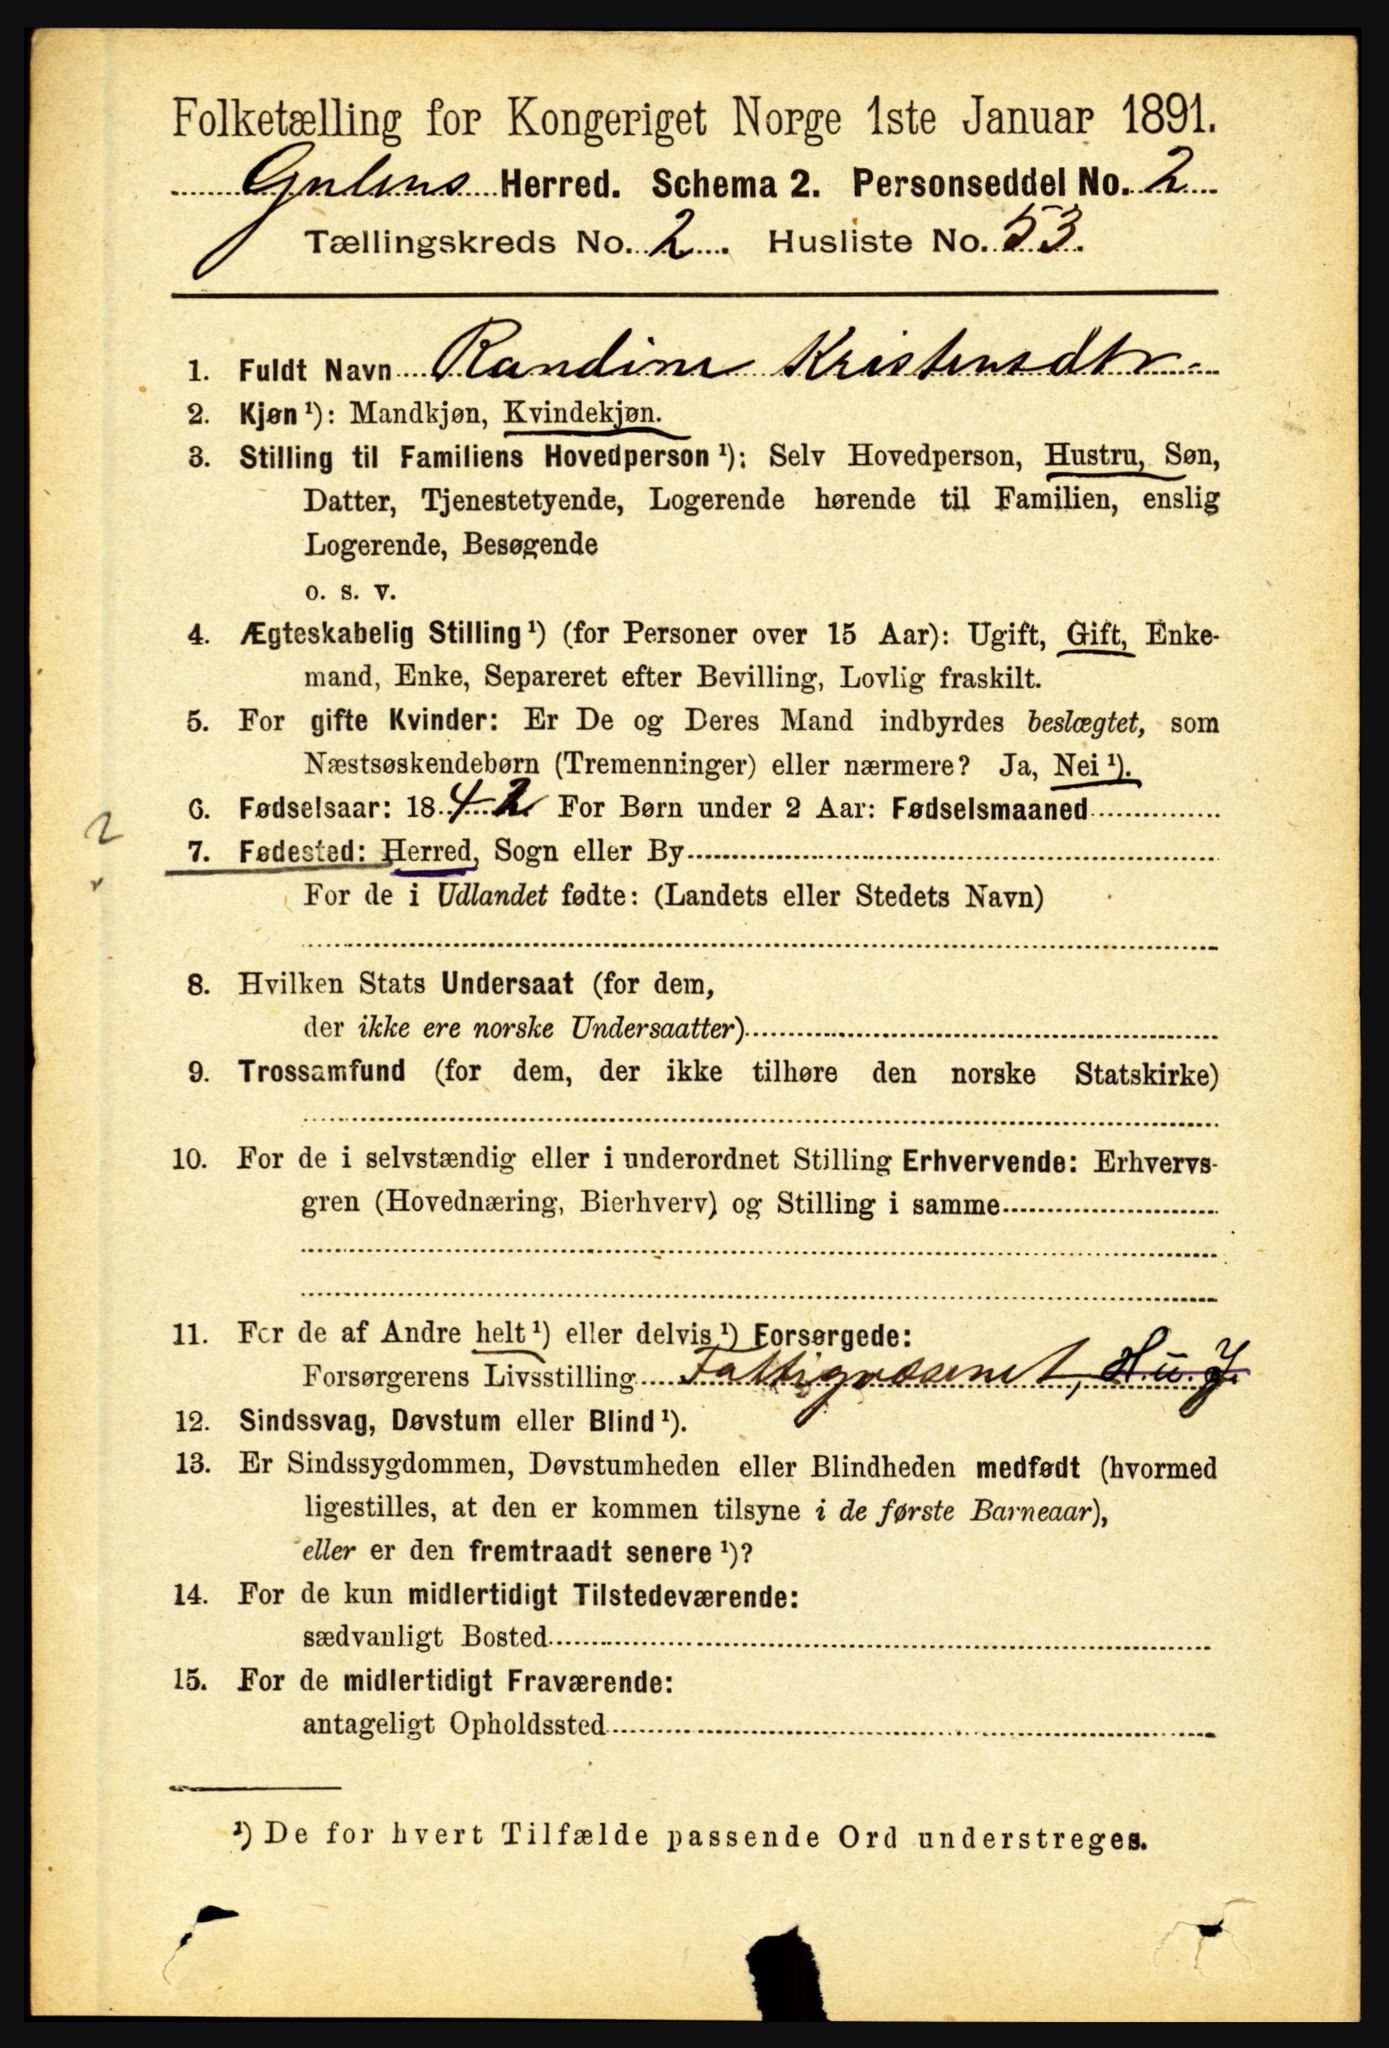 Folketælling for Kongeriget Norge 1ste Januar 1891.
Gulens Herred. Schema 2. Personseddel No. 2
Tællingskreds No. 2. Husliste No. 53.
1. Fuldt Navn Randine Kristensdtr.
2. Kjøn ¹): Mandkjøn, Kvindekjøn.
3. Stilling til Familiens Hovedperson ¹): Selv Hovedperson, Hustru, Søn,
Datter, Tjenestetyende, Logerende hørende til Familien, enslig
Logerende, Besøgende
o. s. v.
4. Ægteskabelig Stilling ¹) (for Personer over 15 Aar): Ugift, Gift, Enke-
mand, Enke, Separeret efter Bevilling, Lovlig fraskilt.
5. For gifte Kvinder: Er De og Deres Mand indbyrdes beslægtet, som
Næstsøskendebørn (Tremenninger) eller nærmere? Ja, Nei ¹).
6. Fødselsaar: 1842 For Børn under 2 Aar: Fødselsmaaned
2
7. Fødested: Herred, Sogn eller By
For de i Udlandet fødte: (Landets eller Stedets Navn)
8. Hvilken Stats Undersaat (for dem,
der ikke ere norske Undersaatter)
9. Trossamfund (for dem, der ikke tilhøre den norske Statskirke)
10. For de i selvstændig eller i underordnet Stilling Erhvervende: Erhvervs-
gren (Hovednæring, Bierhverv) og Stilling i samme
11. For de af Andre helt ¹) eller delvis ¹) Forsørgede:
Forsørgerens Livsstilling Fattigvæsenet, H u J.
12. Sindssvag, Døvstum eller Blind ¹).
13. Er Sindssygdommen, Døvstumheden eller Blindheden medfødt (hvormed
ligestilles, at den er kommen tilsyne i de første Barneaar),
eller er den fremtraadt senere ¹)?
14. For de kun midlertidigt Tilstedeværende:
sædvanligt Bosted
15. For de midlertidigt Fraværende:
antageligt Opholdssted
¹) De for hvert Tilfælde passende Ord understreges.